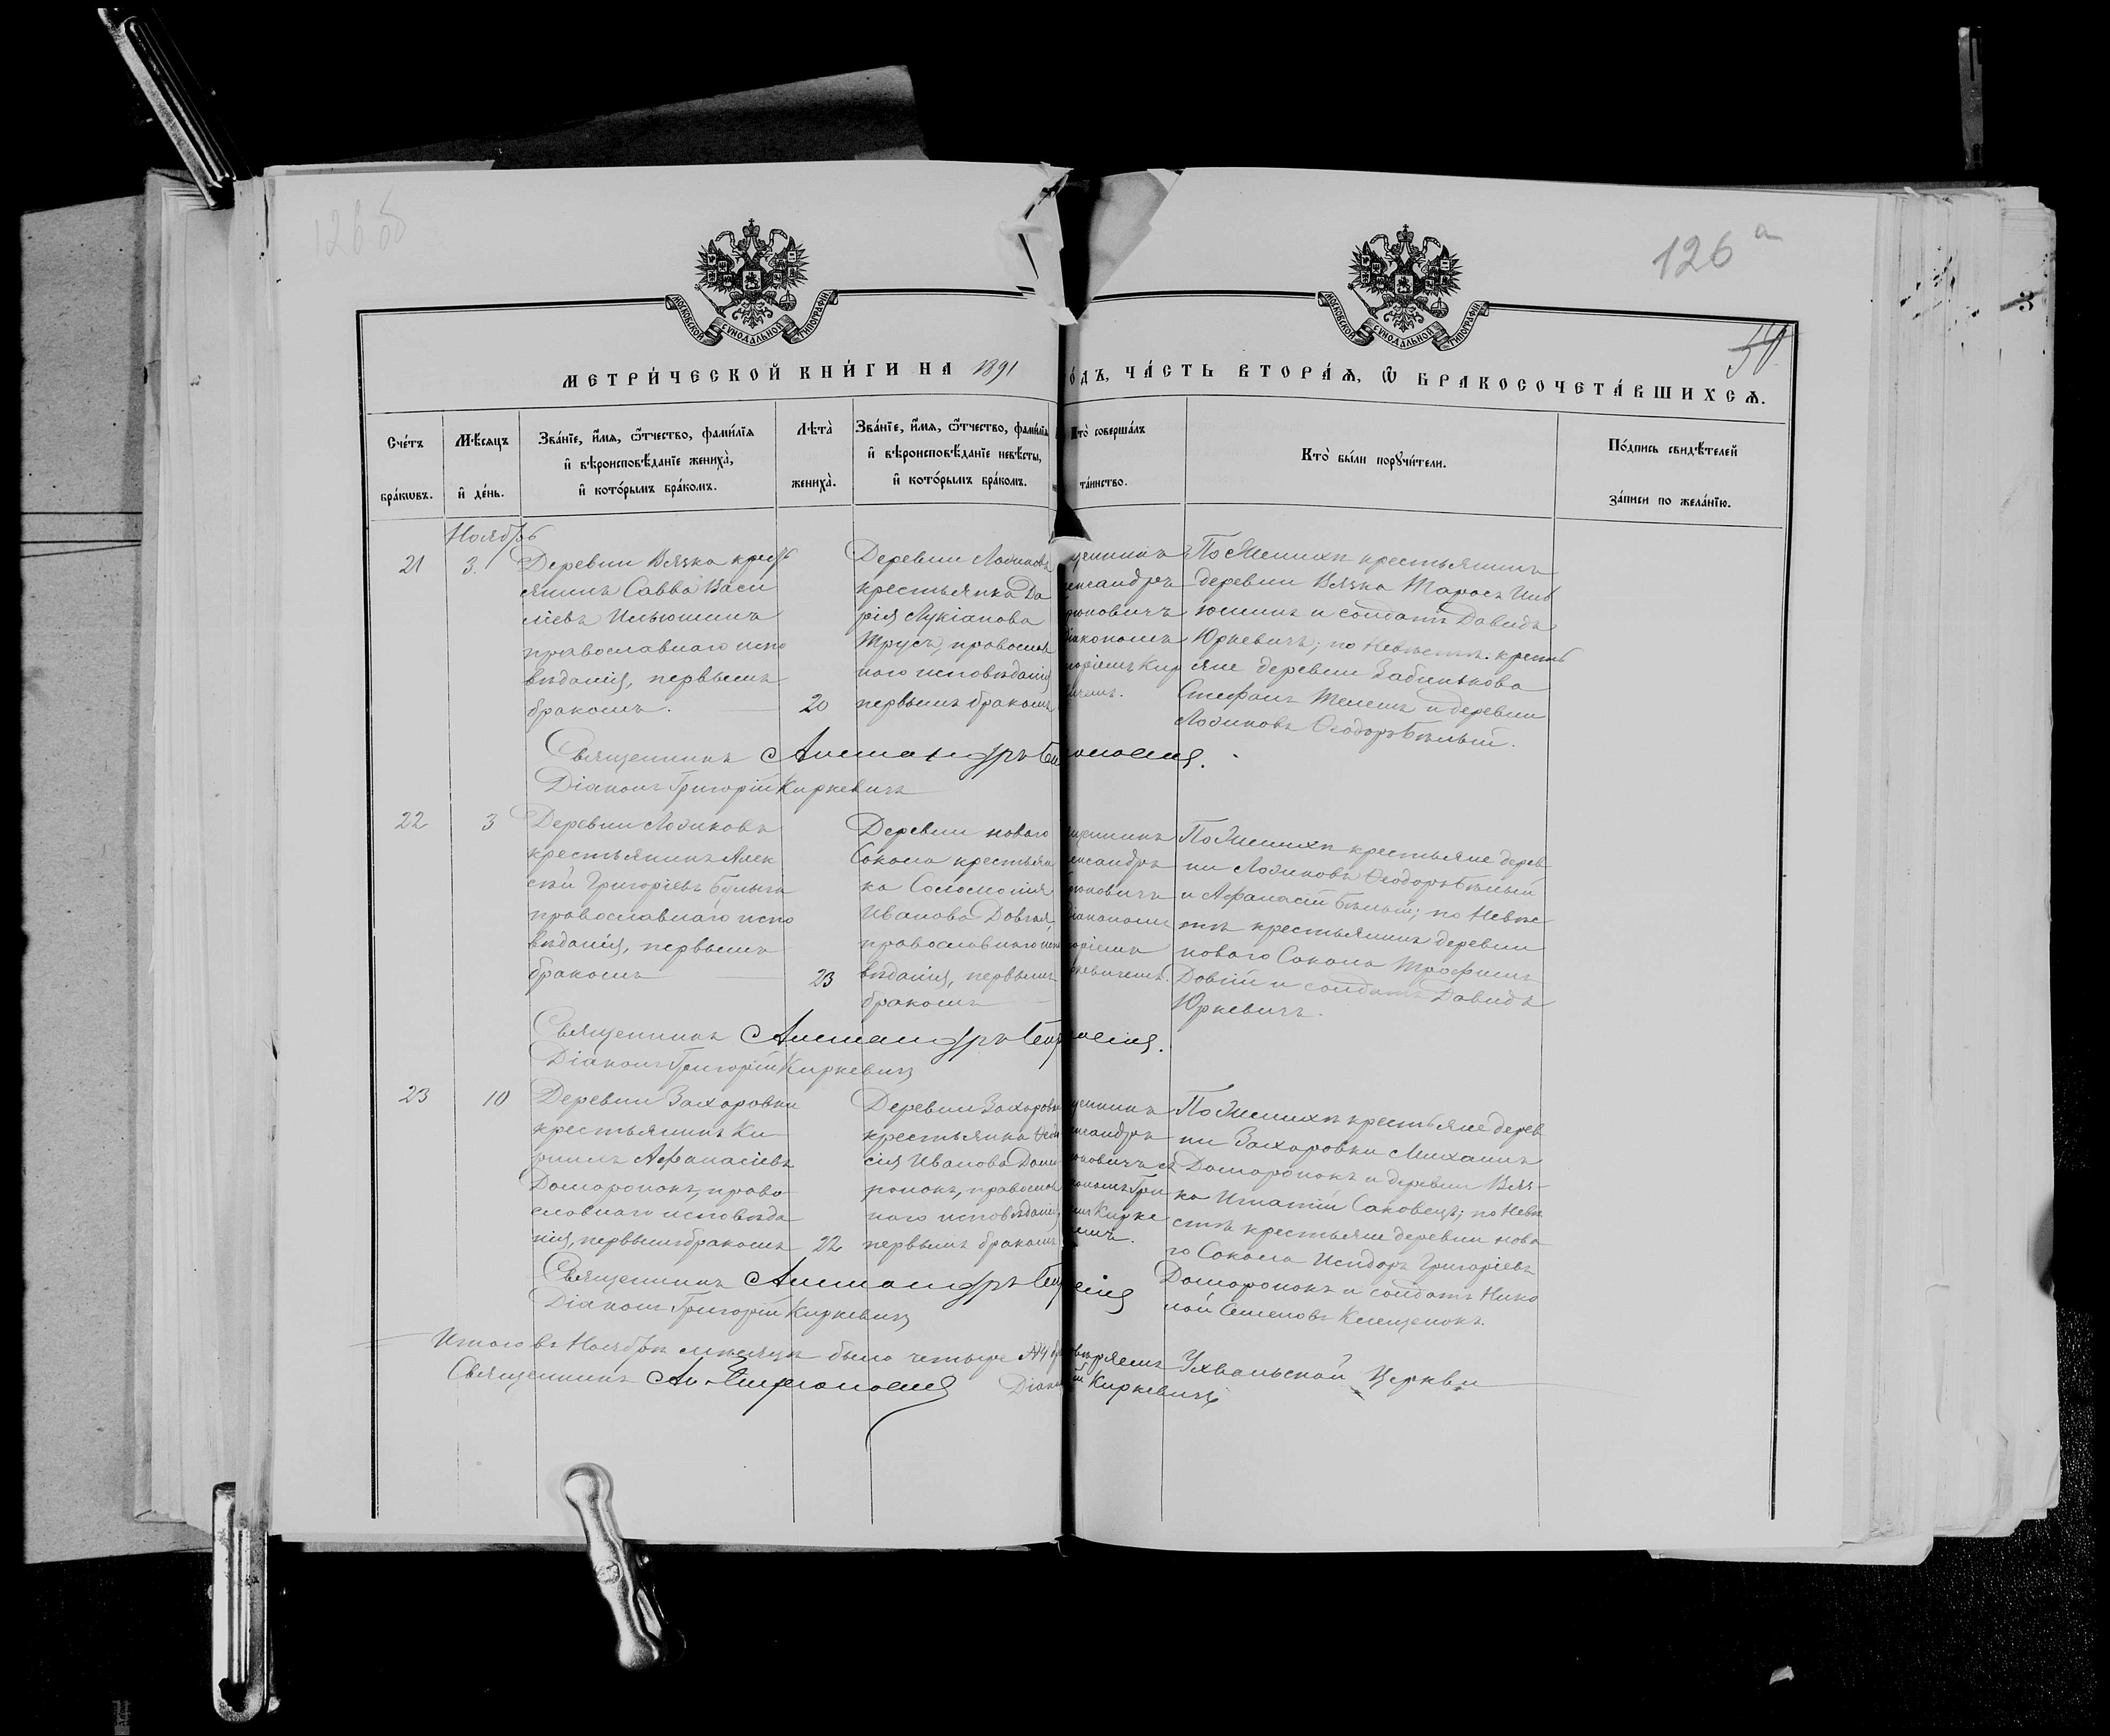 126об
126 а
50
МОСКОВСКОЙ СѴНОДАЛЬНОЙ ТИПОГРАФІИ
МОСКОВСКОЙ СѴНОДАЛЬНОЙ ТИПОГРАФІИ
МЕТРИ́ЧЕСКОЙ КНИ́ГИ НА 1891
о́дъ, ЧА́СТЬ ВТОРА́Ѧ, Ѿ БРАКОСОЧЕТА́ВШИХСѦ.
Сче́тъ
бра́кѡвъ.
Мѣ́сяцъ
и҆ де́нь.
Зва́нїе, и҆́мѧ, ѻ҆́тчество, фами́лїѧ
и҆ вѣроисповѣ́данїе жениха̀,
и҆ кото́рымъ бра́комъ.
Лѣта̀
жениха̀.
Зва́нїе, и҆́мѧ, ѻ҆́тчество, фами́лїѧ
и҆ вѣроисповѣ́данїе невѣ́сты,
и҆ кото́рымъ бра́комъ.
Кто̀ соверша́лъ
та́инство.
Кто̀ бы́ли порꙋчи́тели.
По́дпись свидѣ́телей
за́писи по жела́нїю.
Ноябрь
21
3.
Деревни Вязка кресть
янинъ Савва Васи
ліевъ Ильюшинъ
православнаго испо
вѣданія, первымъ
бракомъ.
20
Деревни
крестьянка Да
рія Лукіанова
Трусъ, православ
наго исповѣданія
первымъ бракомъ
щенникъ
ександръ
роновичъ
діакономъ
горіемъ Кир
ичемъ.
По Женихѣ крестьянинъ
деревни Вязка Тарасъ Иль
юшинъ и солдатъ Давидъ
Юркевичъ; по Невѣстѣ: кресть
яне деревни
Стефанъ и деревни
Ѳеодоръ Бѣлый.
Священникъ Александръ
Діаконъ Григорій Киркевичъ
22
3
Деревни
крестьянинъ Алек
сѣй Григоріевъ
православнаго испо
вѣданія, первымъ
бракомъ
23
Деревни новаго
Сокола крестьян
ка Соломонія
Иванова Довгая
православнаго испо
вѣданія, первымъ
бракомъ
щенникъ
ександръ
роновичъ
діакономъ
горіемъ
ркевичемъ.
По Женихѣ крестьяне дерев
ни Ѳеодоръ Бѣлый
и Аѳанасій Бѣлый; по Невѣс
тѣ крестьянинъ деревни
новаго Сокола Трофимъ
Довгій и солдатъ Давидъ
Юркевичъ.
Священникъ Александръ
Діаконъ Григорій Киркевичъ
23
10
Деревни Захаровки
крестьянинъ Ки
риллъ Афанасіевъ
Доморонокъ, право
славнаго исповѣда
нія, первымъ бракомъ
22
Деревни Захаровки
крестьянка Ѳеодо
сія Иванова Домо
ронокъ, православ
наго исповѣданія
первымъ бракомъ
щенникъ
ександръ
роновичъ съ
акономъ Гри
емъ Кирке
емъ.
По Женихѣ крестьяне дерев
ни Захаровки Михаилъ
Доморонокъ и деревни Вяз-
ка Игнатій Саковецъ; по Невѣ
стѣ крестьяне деревни нова
го Сокола Исидоръ Григоріевъ
Доморонокъ и солдатъ Нико
лай Семеновъ Клещенокъ.
Священникъ Александръ
Діаконъ Григорій Киркевичъ
Итого въ Ноябрѣ мѣсяцѣ было четыре №4 вѣряемъ Ухвальской Церкви
Священникъ Ал. Діаконъ Киркевичъ